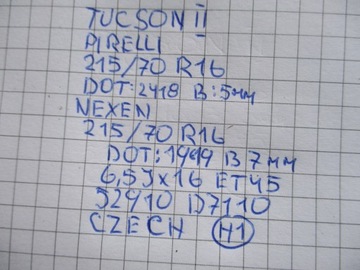 TUCSON II
PIRELLI
215/70 R16
DOT: 2418 B: 5мм
NEXEN
215/70 R16
DOT: 1919 B 7мм
6,5Jx16 ET45
52910 D7110
CZECH H1